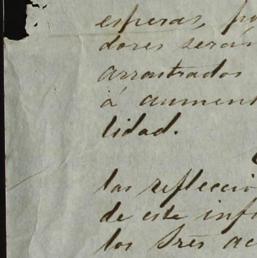 esperas, po
dores serás
arrastrados
á aument
lidad.
las refleccio
de este inf
los Sres ac